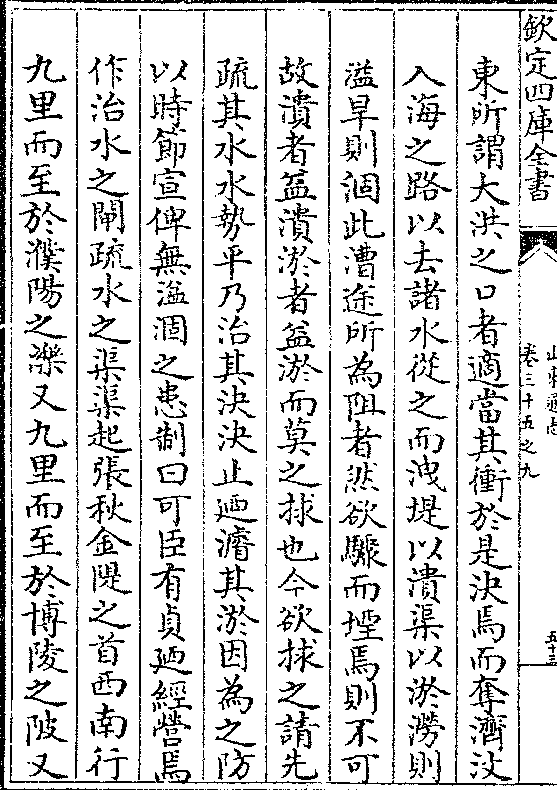 欽定四庫全書
山東通志
卷三十五之九
五十三
東所謂大洪之口者適當其衝於是決焉而奪濟汶
入海之路以去諸水從之而洩堤以潰渠以淤澇則
溢旱則涸此漕途所為阻者然欲驟而堙焉則不可
故潰者益潰淤者益淤而莫之捄也今欲捄之請先
疏其水水勢平乃治其決決止廼濬其淤因為之防
以時節宣俾無溢涸之患制曰可臣有貞廼經營焉
作治水之閘疏水之渠渠起張秋金隄之首西南行
九里而至於濮陽之濼又九里而至於博陵之陂又